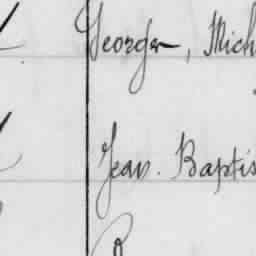 Georges, Mich
Jean. Baptis